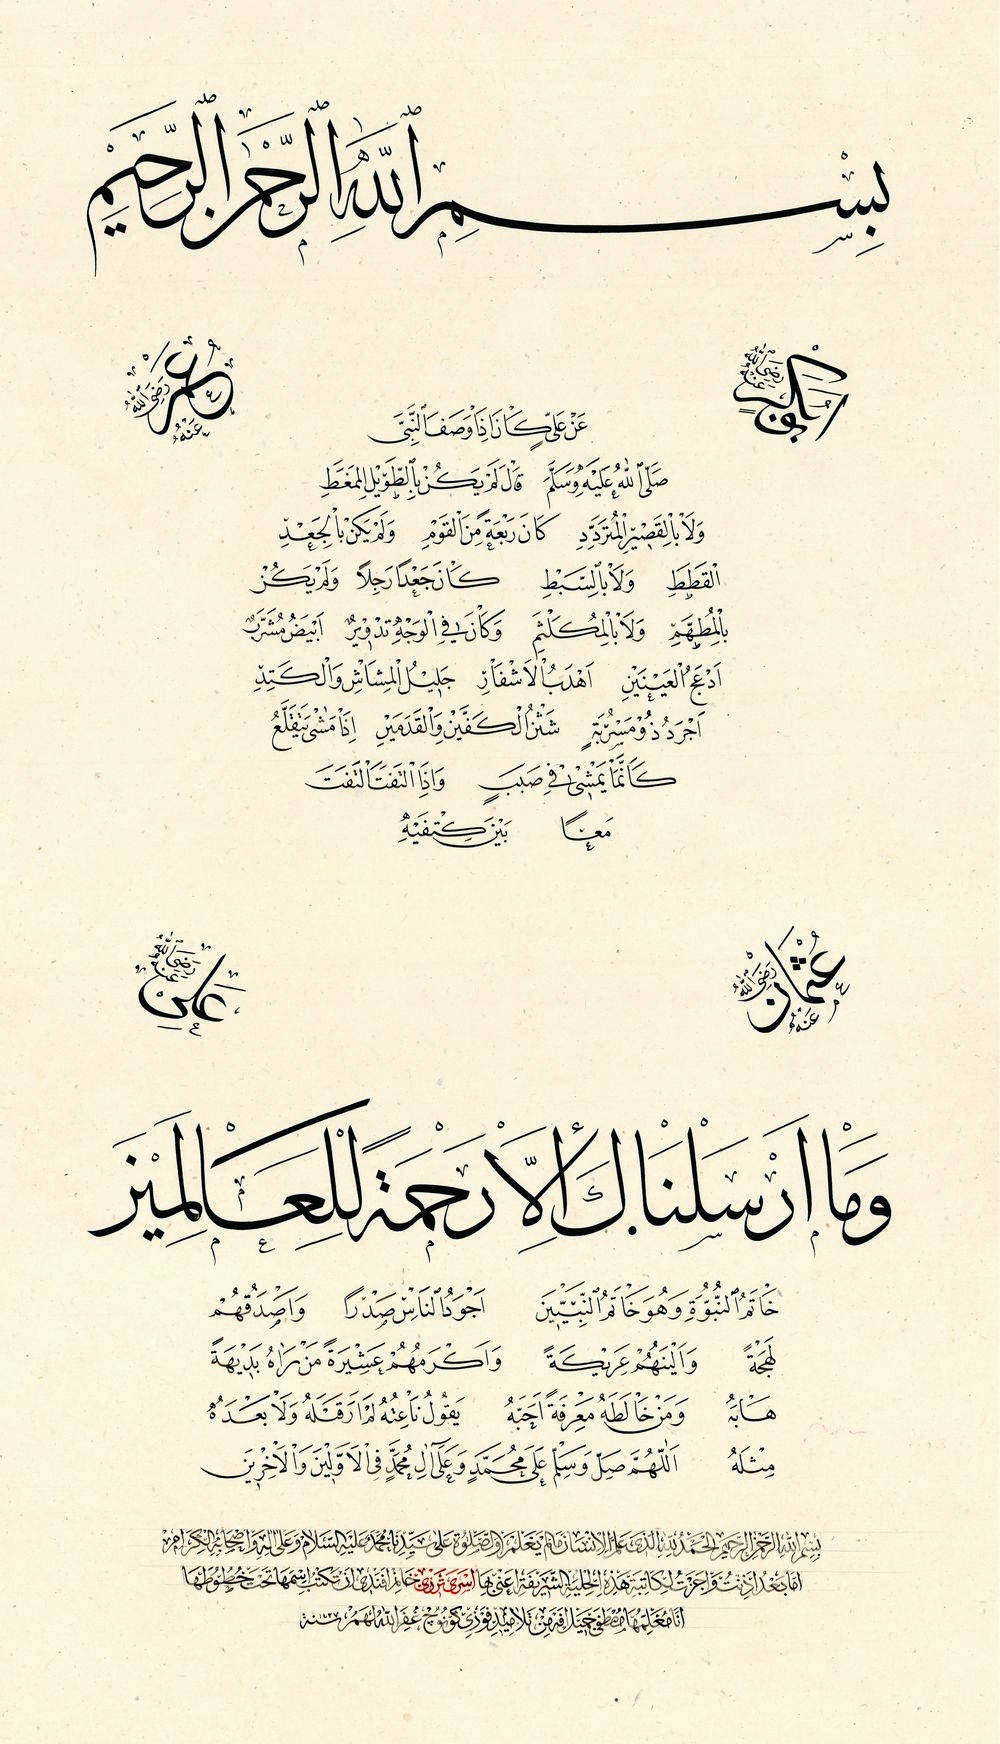 بِسْمِ ٱللّٰهِ ٱلرَّحْمٰنِ ٱلرَّحِيمِ
ابو بكر رضي الله عنه
عمر رضي الله عنه
عَنْ عَلِيٍّ كَانَ اِذَا وَصَفَ النَّبِيَّ
صَلَّى اللهُ عَلَيْهِ وَسَلَّمَ قَالَ لَمْ يَكُنْ بِالطَّوِيلِ الْمُمَغَّطِ
وَلَا بِالْقَصِيْرِ الْمُتَرَدِّدِ كَانَ رَبْعَةً مِنَ الْقَوْمِ وَلَمْ يَكُنْ بِالْجَعْدِ
الْقَطَطِ وَلَا بِالسَّبْطِ كَانَ جَعْدًا رَجِلًا وَلَمْ يَكُنْ
بِالْمُطَهَّمِ وَلَا بِالْمُكَلْثَمِ وَكَانَ فِي الْوَجْهِ تَدْوِيْرٌ اَبْيَضُ مُشَرَّبٌ
اَدْعَجُ الْعَيْنَيْنِ اَهْدَبُ الْاَشْفَارِ جَلِيْلُ الْمُشَاشِ وَالْكَتَدِ
اَجْرَدُ ذُوْ مَسْرُبَةٍ شَثْنُ الْكَفَّيْنِ وَالْقَدَمَيْنِ اِذَا مَشٰى يَتَقَلَّعُ
كَاَنَّمَا يَمْشِيْ فِي صَبَبٍ وَاِذَا الْتَفَتَ الْتَفَتَ
مَعًا بَيْنَ كِتْفَيْهِ
عثمان رضي الله عنه
علي رضي الله عنه
وَمَا اَرْسَلْنَاكَ اِلَّا رَحْمَةً لِلْعَالَمِينَ
خَاتَمُ النُّبُوَّةِ وَهُوَ خَاتَمُ النَّبِيِّيْنَ اَجْوَدُ النَّاسِ صَدْرًا وَاَصْدَقُهُمْ
لَهْجَةً وَاَلْيَنُهُمْ عَرِيْكَةً وَاَكْرَمُهُمْ عَشِيْرَةً مَنْ رَاٰهُ بَدِيْهَةً
هَابَهُ وَمَنْ خَالَطَهُ مَعْرِفَةً اَحَبَّهُ يَقُولُ نَاعِتُهُ لَمْ اَرَ قَبْلَهُ وَلَا بَعْدَهُ
مِثْلَهُ اَللّٰهُمَّ صَلِّ وَسَلِّمْ عَلٰى مُحَمَّدٍ وَعَلٰى اٰلِ مُحَمَّدٍ فِي الْاَوَّلِيْنَ وَالْاٰخِرِيْنَ
بسم الله الرحمن الرحيم الحمد لله الذى علم الانسان مالم يعلم والصلوة على سيدنا محمد عليه السلام وعلى اله واصحابه الكرام
اما بعد اذنت واجزت لكاتبة هذه الحلية الشريفة اعنى بها خانم افندى ان تكتب اسمها تحت خطوطها
انا معلمها مصطفى من تلاميذ غفر الله لهم سنة